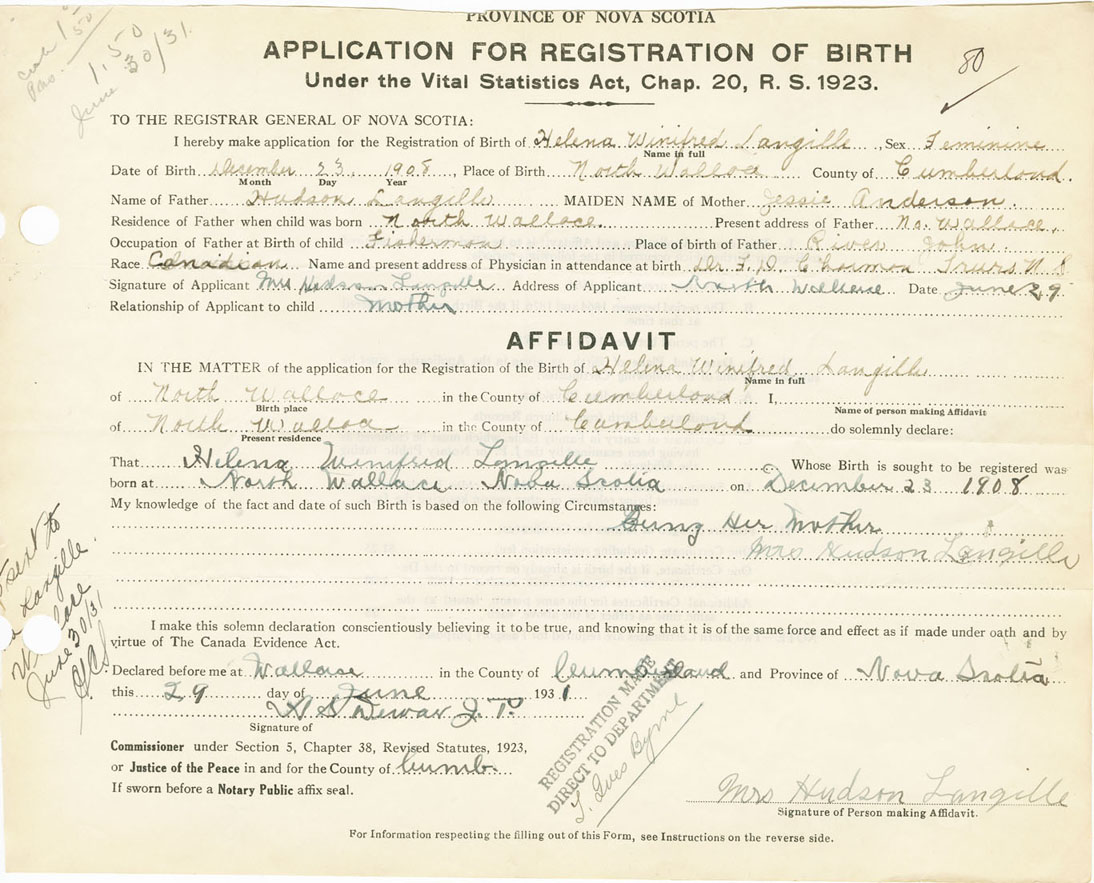 PROVINCE OF NOVA SCOTIA
APPLICATION FOR REGISTRATION OF BIRTH
Under the Vital Statistics Act, Chap. 20, R. S. 1923.
80
1.50
June 30/31
TO THE REGISTRAR GENERAL OF NOVA SCOTIA:
I hereby make application for the Registration of Birth of Helena Winifred Langille, Sex Feminine
Name in full
Date of Birth December 23, 1908, Place of Birth North Wallace County of Cumberland.
Month Day Year
Name of Father Hudson Langille MAIDEN NAME of Mother Jessie Anderson.
Residence of Father when child was born North Wallace. Present address of Father No. Wallace.
Occupation of Father at Birth of child Fisherman Place of birth of Father River John.
Race Canadian Name and present address of Physician in attendance at birth Dr. F. D. Truro N S
Signature of Applicant Mrs Hudson Langille Address of Applicant North Wallace Date June 29
Relationship of Applicant to child Mother
AFFIDAVIT
IN THE MATTER of the application for the Registration of the Birth of Helena Winifred Langille
Name in full
of North Wallace in the County of Cumberland I,
Birth place Name of person making Affidavit
of North Wallace in the County of Cumberland do solemnly declare:
Present residence
That Helena Winifred Langille Whose Birth is sought to be registered was
born at North Wallace Nova Scotia on December 23 1908
My knowledge of the fact and date of such Birth is based on the following Circumstances:
Being Her Mother
Mrs Hudson Langille
sent to
Langille
Wallace
June 30/31
I make this solemn declaration conscientiously believing it to be true, and knowing that it is of the same force and effect as if made under oath and by
virtue of The Canada Evidence Act.
Declared before me at Wallace in the County of Cumberland and Province of Nova Scotia
this 29 day of June 1931
Dewar J. P.
Signature of
Commissioner under Section 5, Chapter 38, Revised Statutes, 1923,
or Justice of the Peace in and for the County of Cumb.
If sworn before a Notary Public affix seal.
REGISTRATION MADE
DIRECT TO DEPARTMENT
Byrne
Mrs Hudson Langille
Signature of Person making Affidavit.
For Information respecting the filling out of this Form, see Instructions on the reverse side.